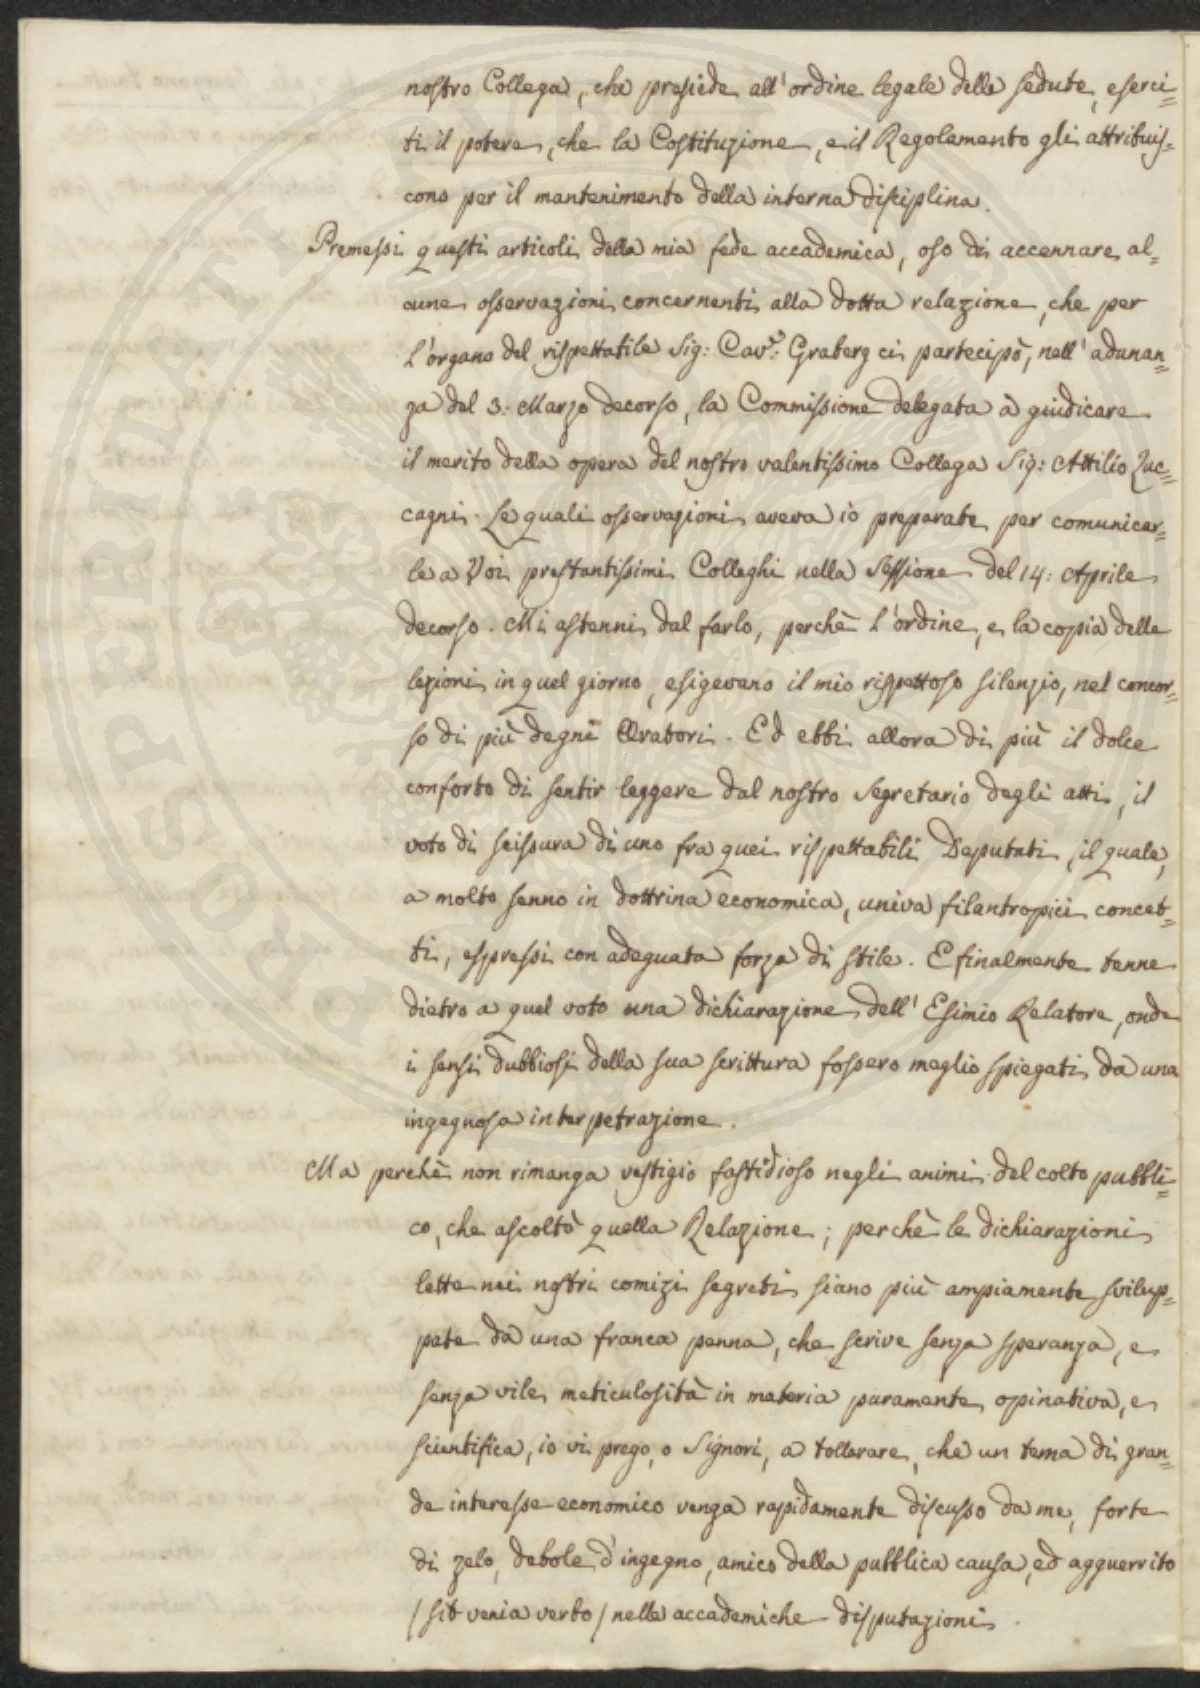 nostro Collega, che presiede all'ordine legale delle sedute, eserci=
ti il potere, che la Costituzione, e il Regolamento gli attribuis=
cono per il mantenimento della interna disciplina.
Premessi questi articoli della mia fede accademica, oso di accennare al=
cune osservazioni concernenti alla dotta relazione, che per
l'organo del rispettabile Sig: Cav.e Graberg ci partecipò, nell'adunan=
za del 3: Marzo decorso, la Commissione delegata a giudicare
il merito della opera del nostro valentissimo Collega Sig: Attilio Zuc=
cagni. Le quali osservazioni aveva io preparate per comunicar=
le a Voi prestantissimi Colleghi nella Sessione del 14: Aprile
decorso. Mi astenni dal farlo, perchè l'ordine, e la copia delle
lezioni in quel giorno, esigevano il mio rispettoso silenzio, nel concor=
so di più degni Oratori. Ed ebbi allora di più il dolce
conforto di sentir leggere dal nostro Segretario degli atti, il
voto di scissura di uno fra quei rispettabili Deputati, il quale,
a molto senno in dottrina economica, univa filantropici concet=
ti, espressi con adeguata forza di stile. E finalmente tenne
dietro a quel voto una dichiarazione dell'Esimio Relatore, onde
i sensi dubbiosi della sua scrittura fossero meglio spiegati da una
ingegnosa interpetrazione.
Ma perchè non rimanga vestigio fastidioso negli animi del colto pubbli=
co, che ascoltò quella Relazione; perchè le dichiarazioni
lette nei nostri comizi segreti siano più ampiamente svilup=
pate da una franca penna, che scrive senza speranza, e
senza vile meticulosità in materia puramente opinativa, e
scientifica, io vi prego, o Signori, a tollerare, che un tema di gran=
de interesse economico venga rapidamente discusso da me, forte
di zelo, debole d'ingegno, amico della pubblica causa, ed agguerrito
/sit venia verbo/ nelle accademiche disputazioni.